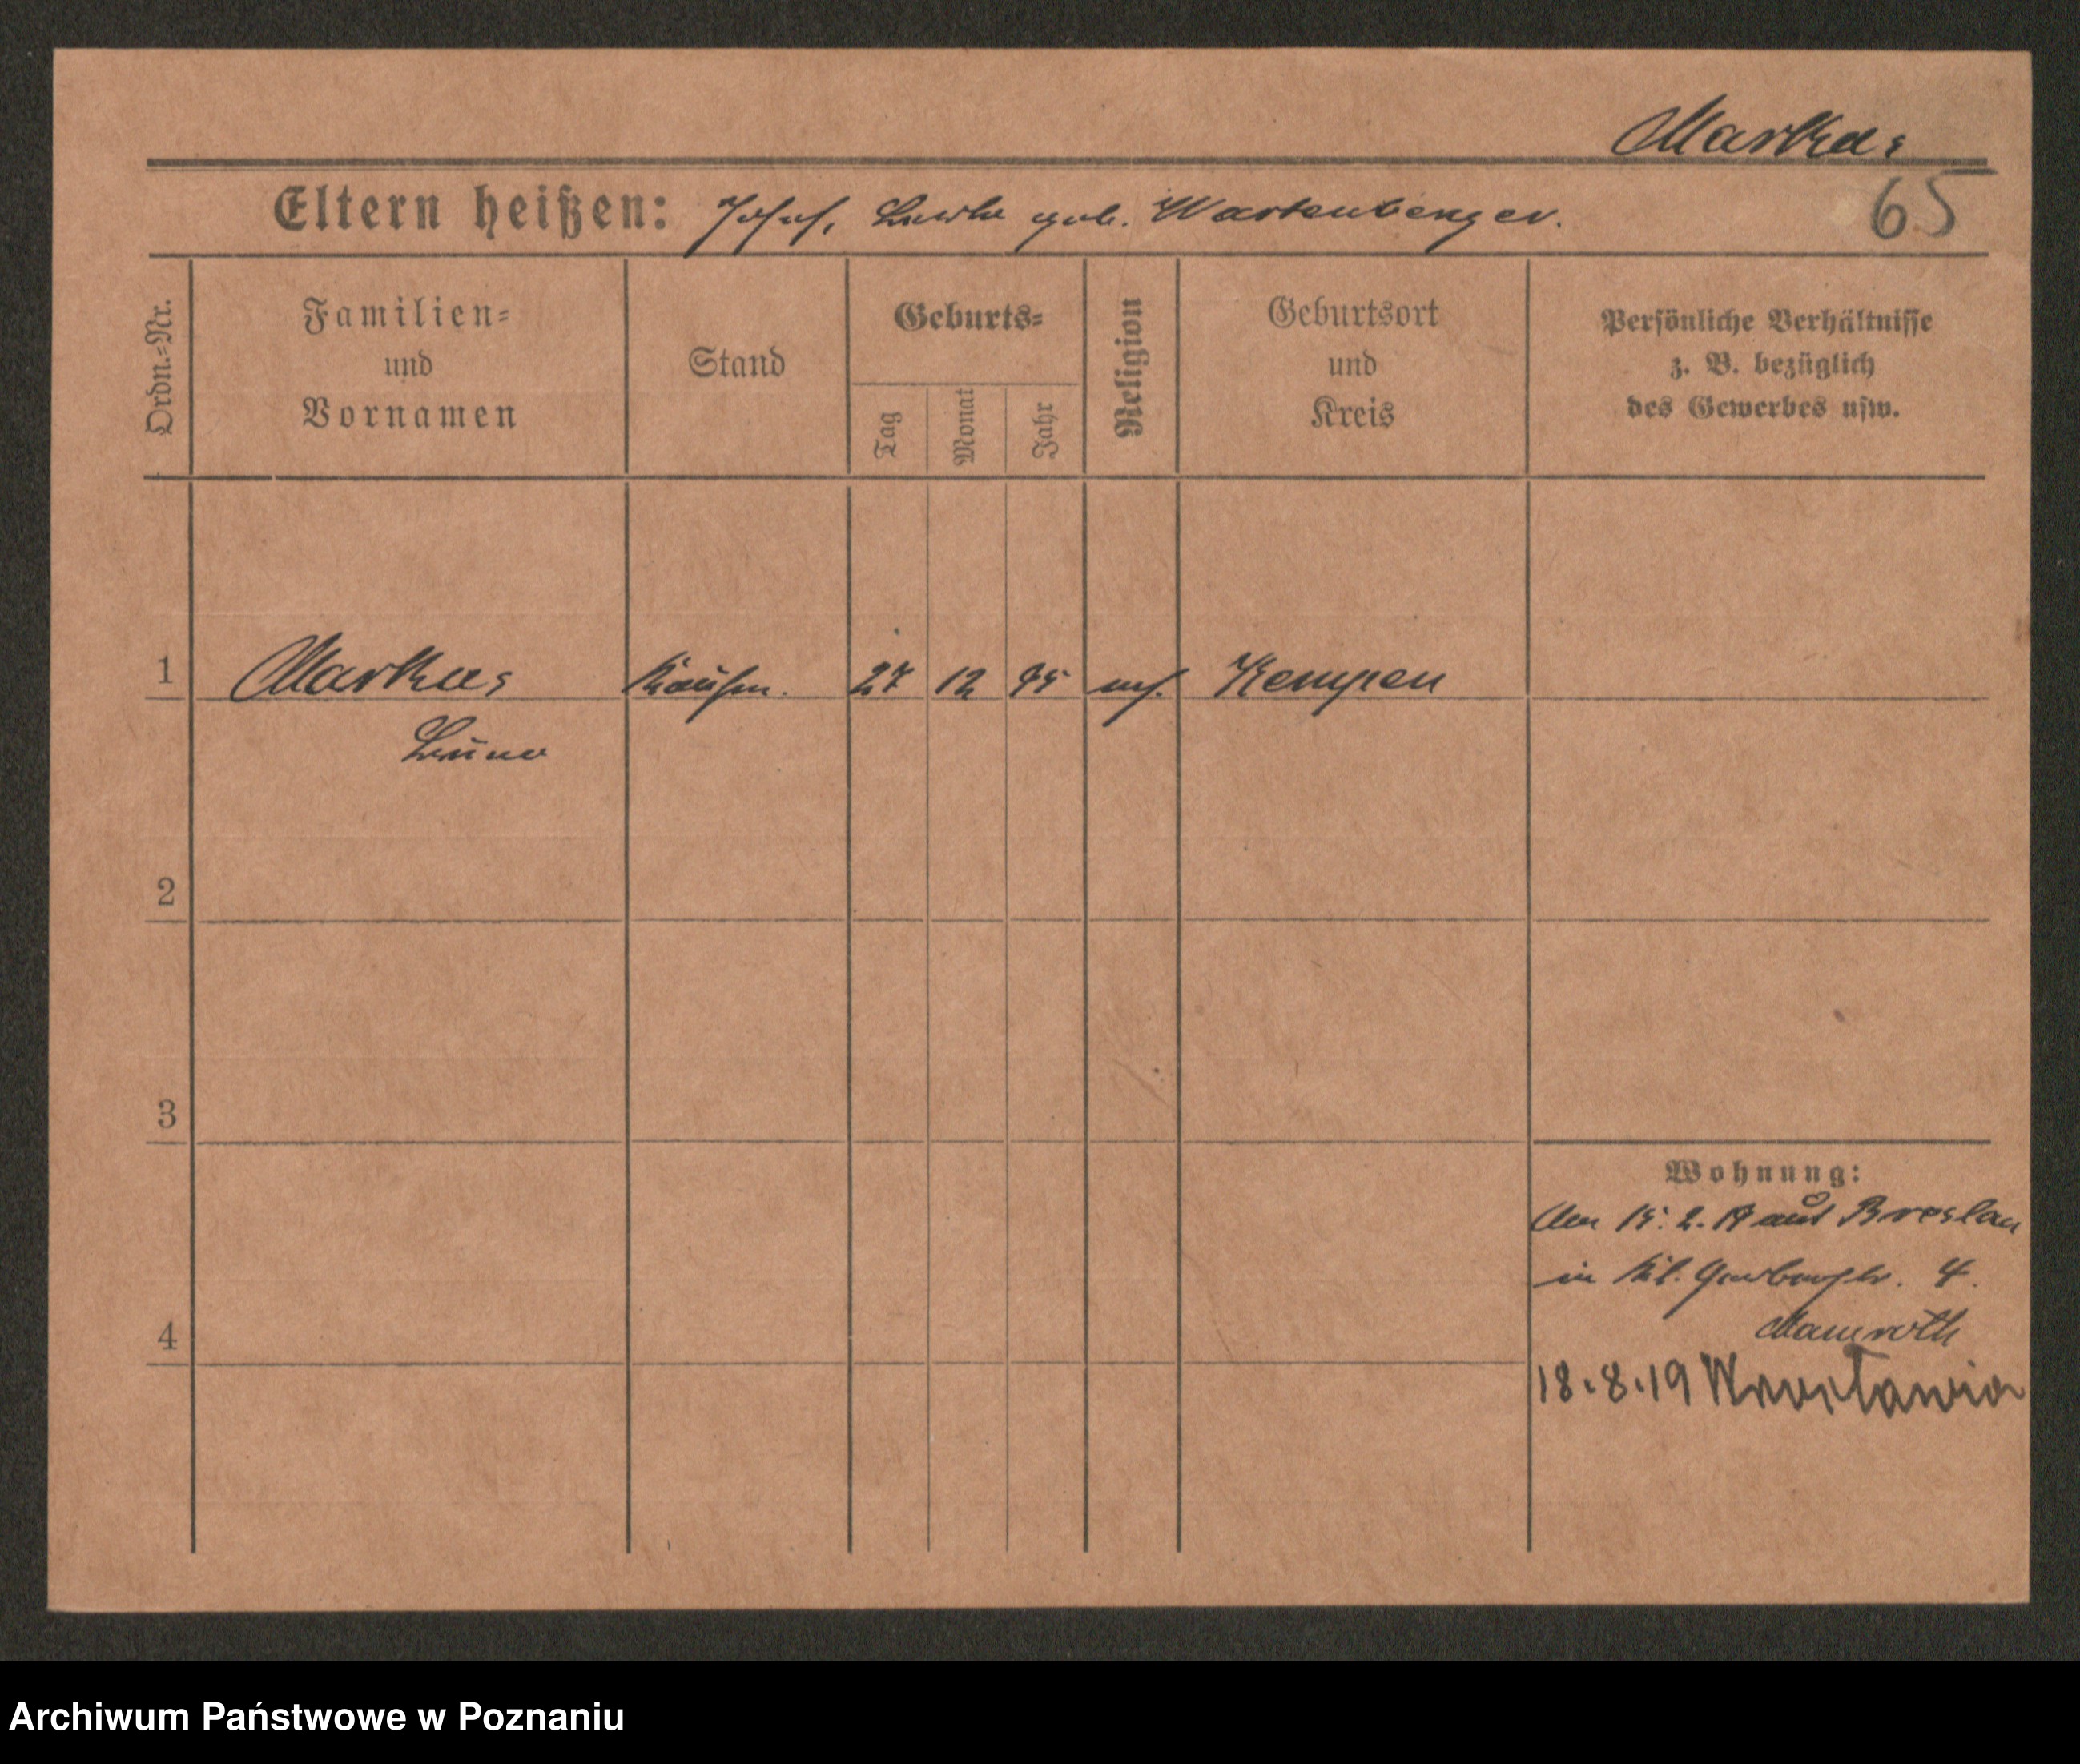 Markus
65
Eltern heißen: Josef, geb. Wartenberger.
Ordn.=Nr.
Familien=
und
Vornamen
Stand
Geburts=
Tag
Monat
Jahr
Religion
Geburtsort
und
Kreis
Persönliche Verhältnisse
z. B. bezüglich
des Gewerbes usw.
1 Markus Kaufm. 27 12 95 Kempen
Bruno
2
3
4
Wohnung:
Am 15. 2. 19 aus Breslau
in Kl. Gerberstr. 4.
Mamroth
18.8.19 Wrocławia
Archiwum Państwowe w Poznaniu